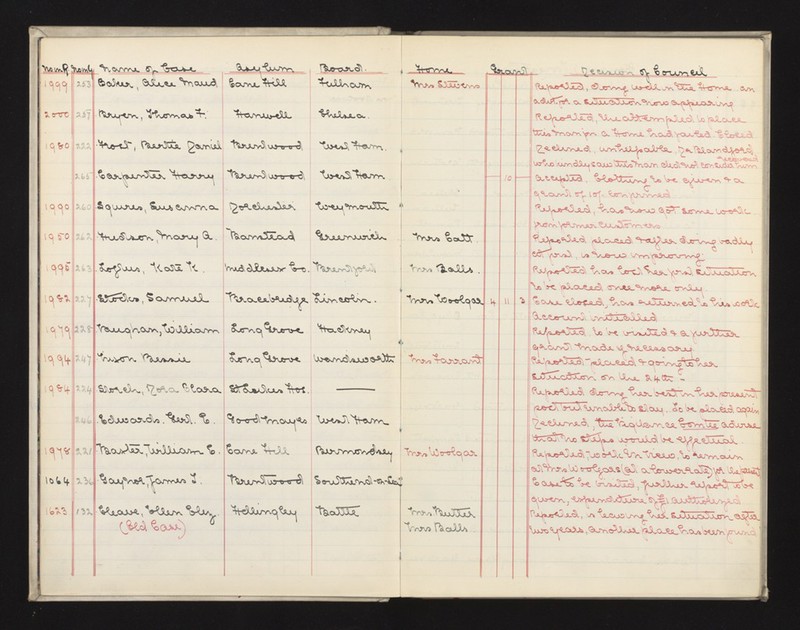 Name of Case Asylum Board. Home Grant Decision of Council
1999 253 Baker, Alice Maud Cane Hill Fulham Mrs Stevens Reported, doing well in the Home. an
advt. for a situation now appearing
2000 257 Bryen, Thomas F. Hanwell Chelsea. Reported, the attempted to place
this man in a Home had failed. Closed
1980 222 Frost, Bertie Daniel Brentwood West Ham. Declined, unhelpable. Dr Blandford
who kindly saw this man did not consider him
265 Carpenter Harry Brentwood West Ham 10 Accepted. Clothing to be given & a
grant of 10/- confirmed
1990 260 Squires, Susanna Dorchester Weymouth Reported, has now got some work
from former customers
1950 262 Hudson, Mary A. Banstead Greenwich Mrs Catt. Reported placed & after doing badly
at first, is now improving
1995 263 Loftus, Kate K. Middlesex Co. Brentford Mrs Balls. Reported has lost her first situation
to be placed once more only.
1982 227 Stocks, Samuel Bracebridge Lincoln. Mrs Woolgar 4 11 3 Case closed, has returned to his work
Account initialled
1979 228 Vaughan, William Long Grove Hackney Reported to be visited & a further
grant made if necessary
1994 247 Bessie Long Grove Wandsworth Mrs Farrant Reported - placed & going to her
situation on the 24th -
1984 224 Storch, Dora Clara St Lukes Hos. Reported doing her best in her present
post but unable to stay. To be placed again
266 Edwards. Gert. E. Goodmayes West Ham Declined, the Reg[d]ance Comtee advise
that no steps would be effectual
1978 221 Baxter, William E. Cane Hill Bermondsey Mrs Woolgar Reported - work in view, to remain
at Mrs Woolgars (at a lower rate) for the present
1064 236 Gaynor, James T. Brentwood Southend-on-Sea Case to be visited, further report to be
given, expenditure of authorised
1623 132 Cleave, Ellen Eliz Hellingley Battle Mrs Butter Reported, is leaving her situation after
(Old Case) Mrs Balls two years, another place has been found